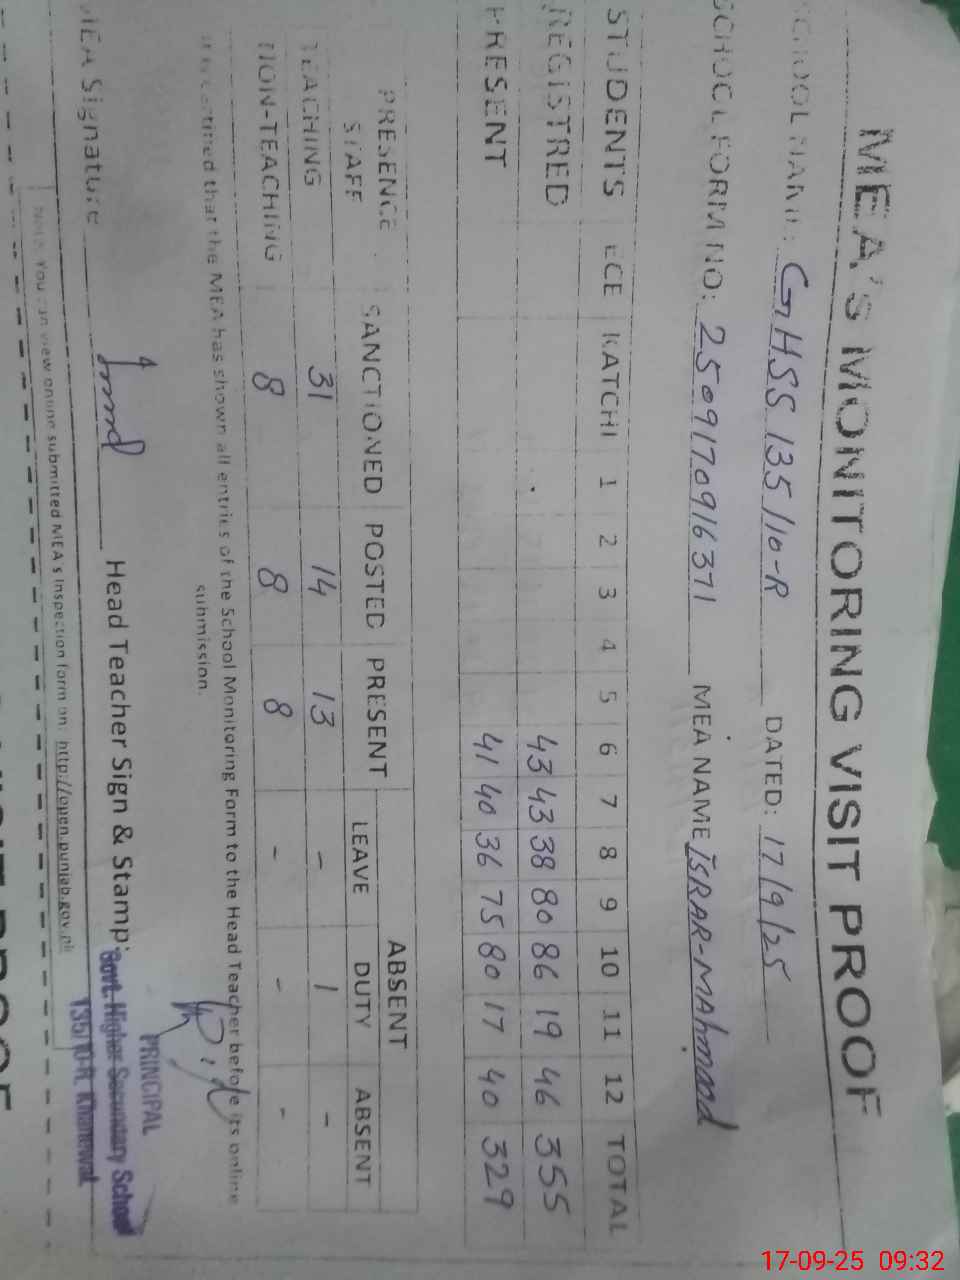 MEA'S MONITORING VISIT PROOF
SCHOOL NAME: GHSS 135/10-R DATED: 17/9/25
SCHOOL FORM NO: 2509170916371 MEA NAME ISRAR-MAhmood
STUDENTS ECE KATCHI 1 2 3 4 5 6 7 8 9 10 11 12 TOTAL
REGISTRED 43 43 38 80 86 19 46 355
PRESENT 41 40 36 75 80 17 40 329
PRESENCE STAFF SANCTIONED POSTED PRESENT ABSENT
LEAVE DUTY ABSENT
TEACHING 31 14 13 - 1 -
NON-TEACHING 8 8 8 - - -
It is certified that the MEA has shown all entries of the School Monitoring Form to the Head Teacher before its online
submission.
MEA Signature Head Teacher Sign & Stamp:
PRINCIPAL
Govt. Higher Secondary School
135/10-R, Khanewal
Note: You can view online submitted MEA's Inspection form on: http://open.punjab.gov.pk
17-09-25 09:32